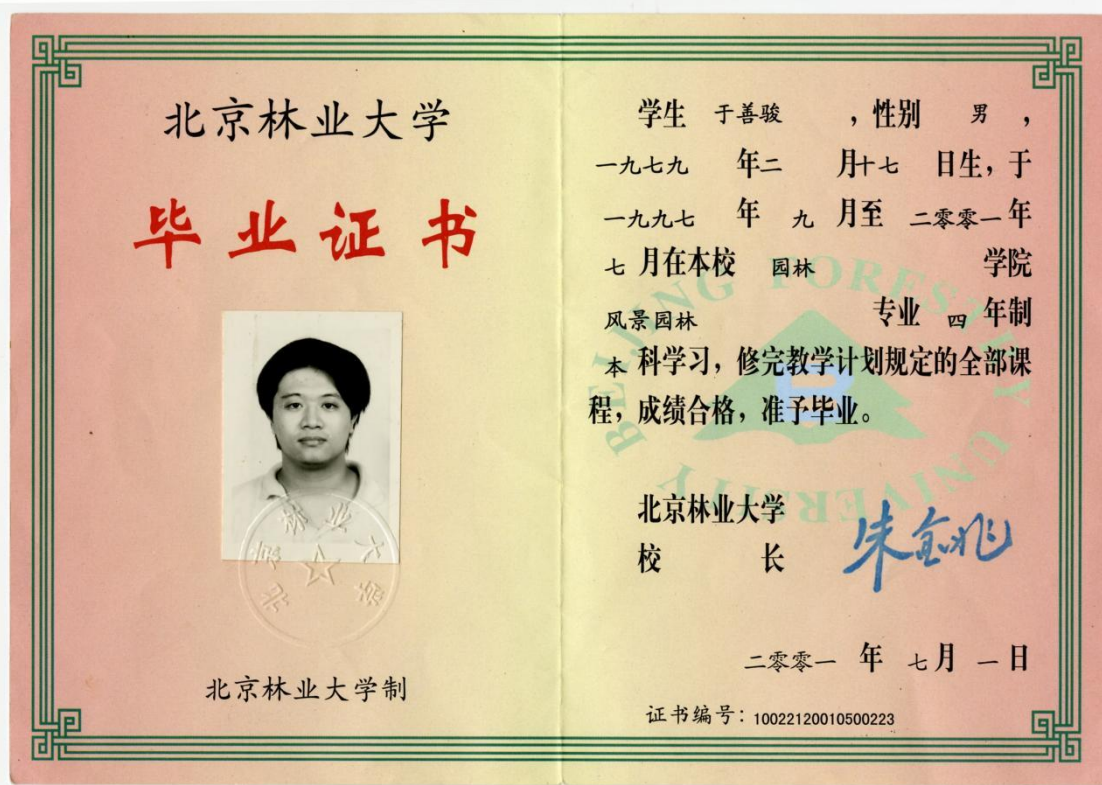 北京林业大学
毕业证书
北京林业大学
北京林业大学制
学生 于善骏 ，性别 男 ，
一九七九 年二 月十七 日生，于
一九九七 年 九 月至 二零零一年
七 月在本校 园林 学院
风景园林 专业 四 年制
本 科学习，修完教学计划规定的全部课
程，成绩合格，准予毕业。
BEIJING FORESTRY UNIVERSITY
北京林业大学
校 长 朱金兆
二零零一 年 七月 一日
证书编号：100221200105000223